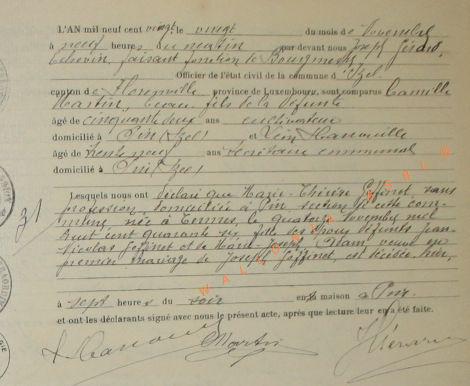 L'AN mil neuf cent vingt le vingt du mois de Novembre
à neuf heures du matin par devant nous Joseph Gérard,
Echevin, faisant fonction de Bourgmestre
Officier de l'état civil de la commune d'Izel
canton de Florenville province de Luxembourg, sont comparus Camille
Martin, beau fils de la défunte
âgé de cinquante deux ans cultivateur
domicilié à Pin (Izel) et
âgé de trente neuf ans secrétaire communal
domicilié à Pin (Izel)
Lesquels nous ont déclaré que Marie-Thérèse Goffinet, sans
profession, domiciliée à Pin section de cette com-
mune, née à le quatorze Novembre mil
huit cent quarante six fille des époux défunts Jean-
Nicolas Goffinet et de Marie-Joseph Adam, veuve en
premier mariage de Joseph Goffinet, est décédée hier,
à sept heures du soir en sa maison à Pin
et ont les déclarants signé avec nous le présent acte, après que lecture leur en a été faite.
31
Martin